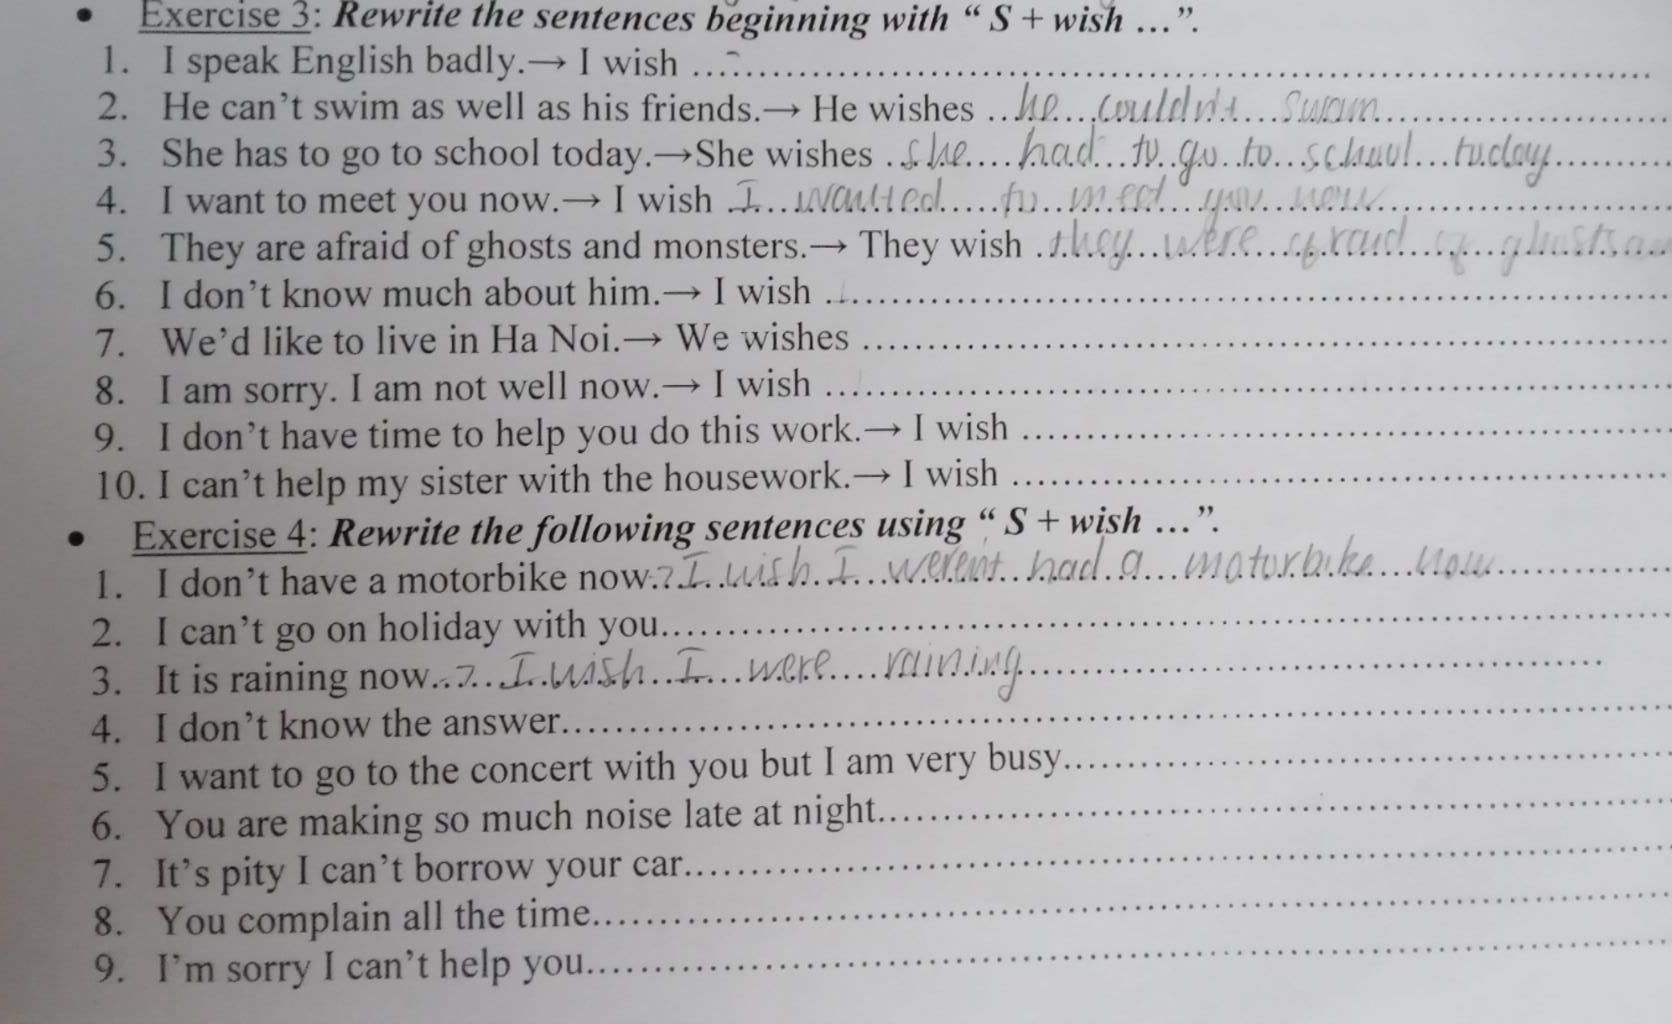 • Exercise 3: Rewrite the sentences beginning with “ S + wish ...”.
1. I speak English badly.→ I wish ....................
2. He can't swim as well as his friends.→ He wishes .. he couldn't swam ....................
3. She has to go to school today.→She wishes . she had to go to school tuday ....................
4. I want to meet you now.→ I wish I wanted to meet you now ....................
5. They are afraid of ghosts and monsters.→ They wish . they were afraid of ghosts
6. I don't know much about him.→ I wish ....................
7. We'd like to live in Ha Noi.→ We wishes ....................
8. I am sorry. I am not well now.→ I wish ....................
9. I don't have time to help you do this work.→ I wish ....................
10. I can't help my sister with the housework.→ I wish ....................
• Exercise 4: Rewrite the following sentences using “ S + wish ...”.
1. I don't have a motorbike now.? I wish I werent had a motorbike now ....................
2. I can't go on holiday with you....................
3. It is raining now..? I wish I were raining ....................
4. I don't know the answer....................
5. I want to go to the concert with you but I am very busy....................
6. You are making so much noise late at night....................
7. It's pity I can't borrow your car....................
8. You complain all the time....................
9. I'm sorry I can't help you....................